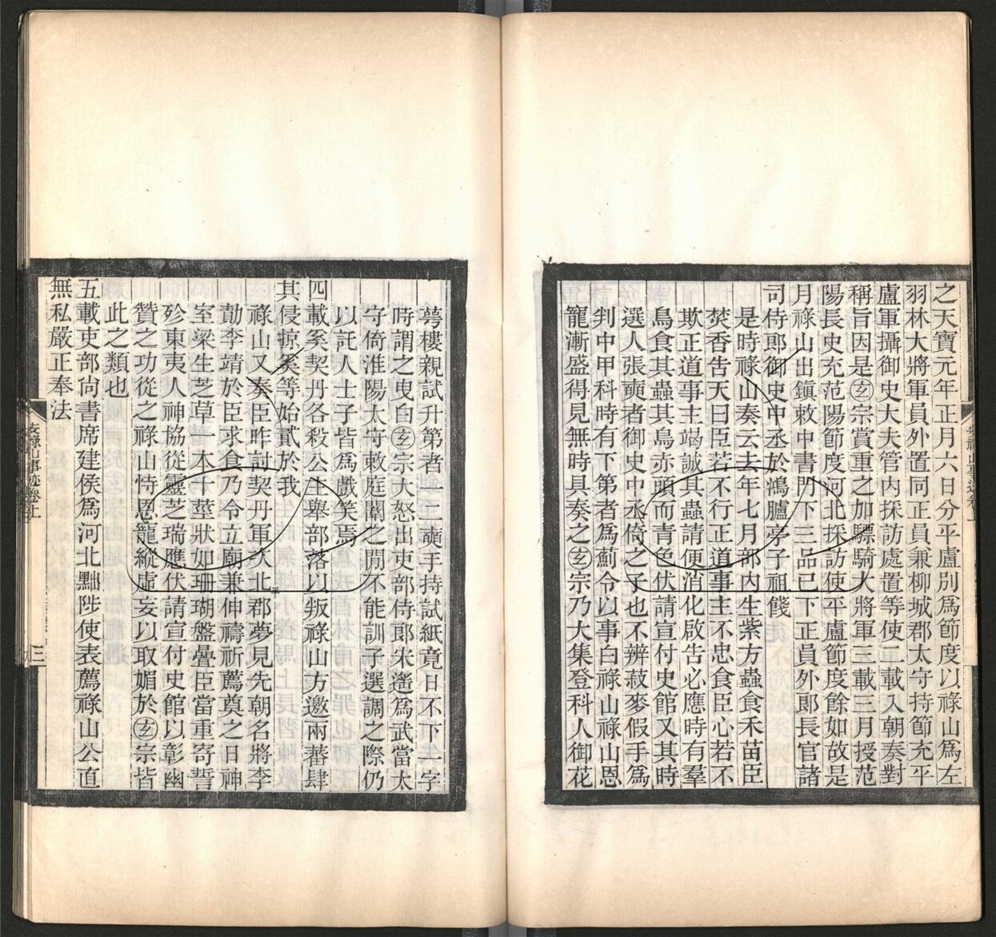 之天寶元年正月六日分平盧別爲節度以祿山爲左
羽林大將軍員外置同正員兼柳城郡太守持節充平
盧軍攝御史大夫管内採訪處置等使二載入朝奏對
稱旨因是玄宗賞重之加驃騎大將軍三載三月授范
陽長史充范陽節度河北採訪使平盧節度餘如故是
月祿山出鎮敕中書門下三品已下正員外郎長官諸
司侍郎御史中丞於鴻臚亭子祖餞
是時祿山奏云去年七月部内生紫方蟲食禾苗臣
焚香告天曰臣若不行正道事主不忠食臣心若不
欺正道事主竭誠其蟲請便消化啟告必應時有羣
鳥食其蟲其鳥赤頭而青色伏請宣付史館又其時
選人張奭者御史中丞倚之子也不辨菽麥假手爲
判中甲科時有下第者爲薊令以事白祿山祿山恩
寵漸盛得見無時具奏之玄宗乃大集登科人御花
萼樓親試升第者一二奭手持試紙竟日不下一字
時謂之曳白玄宗大怒出吏部侍郎宋遙爲武當太
守倚淮陽太守敕庭闈之閒不能訓子選調之際仍
以託人士子皆爲戲笑焉
四載奚契丹各殺公主舉部落以叛祿山方邀兩蕃肆
其侵掠奚等始貳於我
祿山又奏臣昨討契丹軍次北郡夢見先朝名將李
勣李靖於臣求食乃令立廟兼伸禱祈薦奠之日神
室梁生芝草一本十莖狀如珊瑚盤疊臣當重寄誓
殄東夷人神協從靈芝瑞應伏請宣付史館以彰幽
贊之功從之祿山恃恩寵縱虛妄以取媚於玄宗皆
此之類也
五載吏部尚書席建侯爲河北黜陟使表薦祿山公直
無私嚴正奉法
安祿山事迹卷上
三